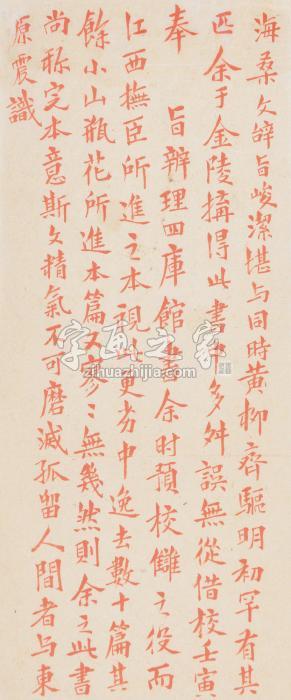 海桑文辞旨峻潔堪与同時黃柳齊驅明初罕有其
匹余于金陵搆得此書都多舛誤無從借校壬寅
奉 旨辦理四庫館書余时預校讎之役而
江西撫臣所進之本視此更劣中逸去數十篇其
餘小山瓶花所進本篇又寥〻無幾然則余之此書
尚称完本意斯文精氣不可磨滅孤留人間者与東
原震識
字画之家
zihuazhijia.com